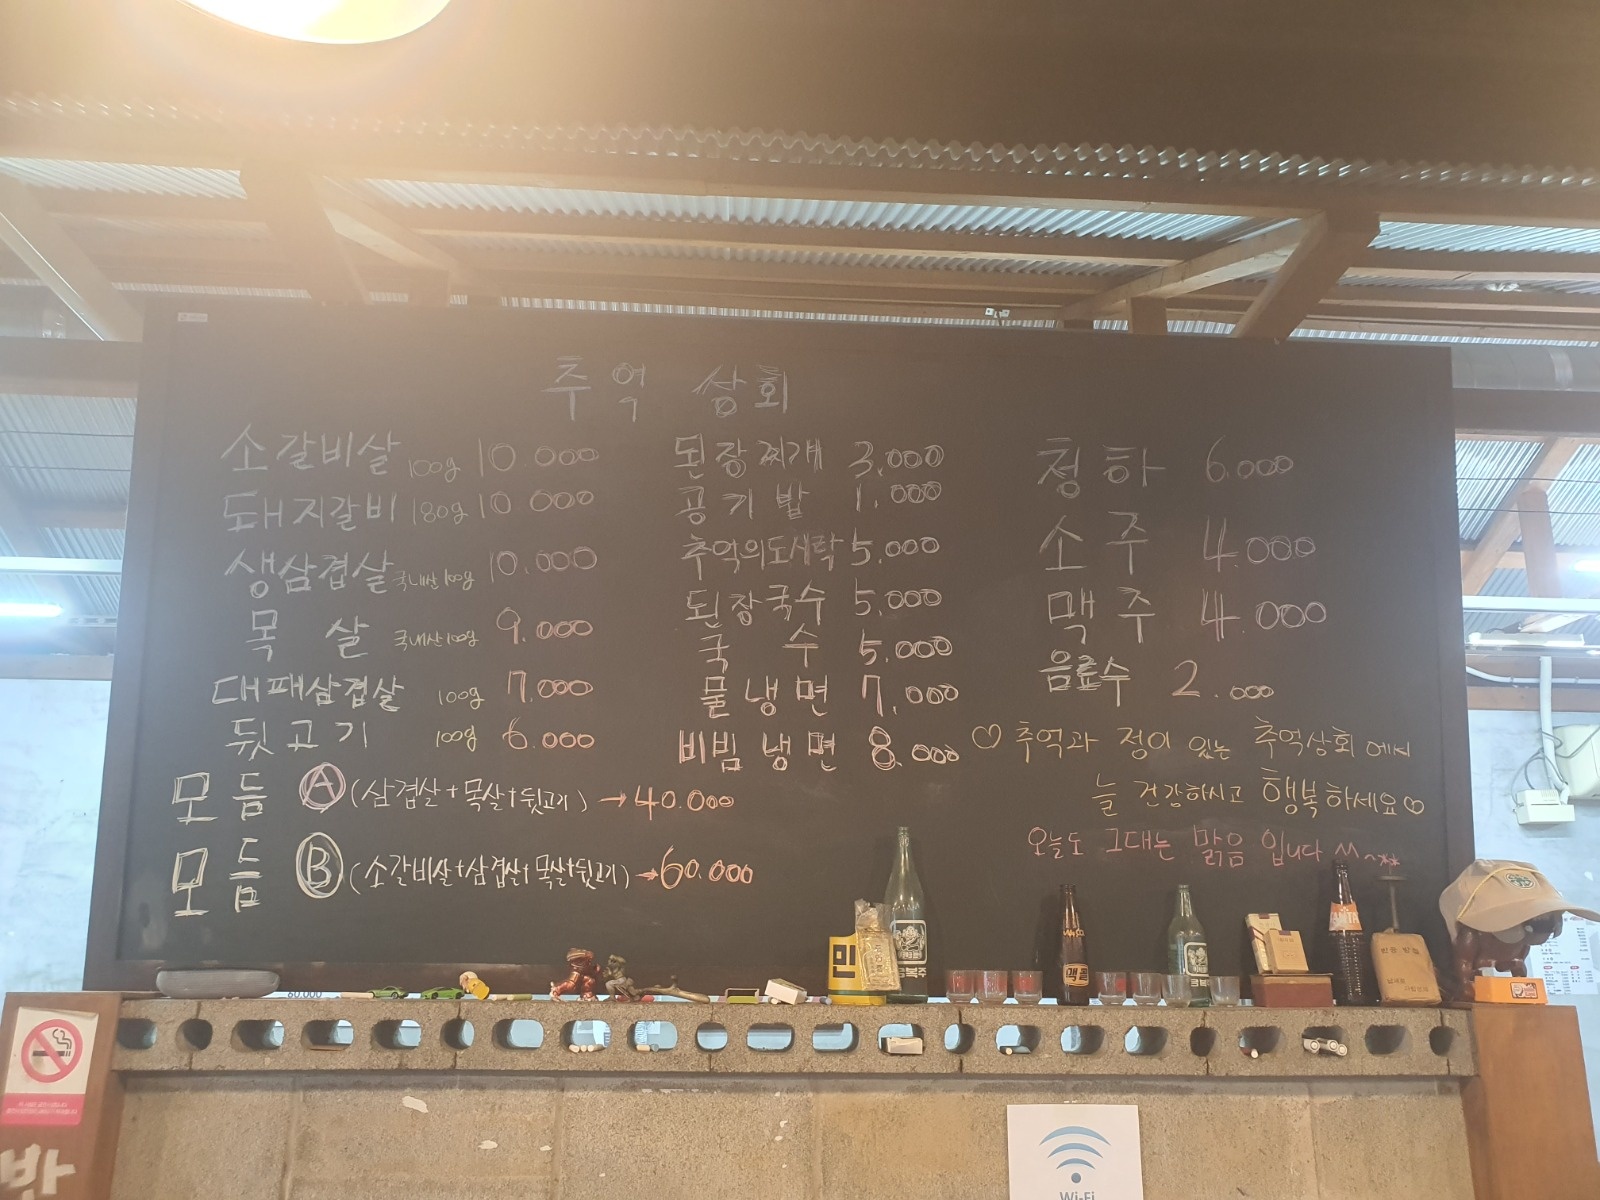 추억 상회
소갈비살 100g 10.000
돼지갈비 180g 10.000
생삼겹살 국내산 100g 10.000
목살 국내산 100g 9.000
대패삼겹살 100g 7.000
뒷고기 100g 6.000
모듬 Ⓐ (삼겹살+목살+뒷고기) → 40.000
모듬 Ⓑ (소갈비살+삼겹살+목살+뒷고기) → 60.000
된장찌개 3.000
공기밥 1.000
추억의도시락 5.000
된장국수 5.000
국수 5.000
물냉면 7.000
비빔냉면 8.000
청하 6.000
소주 4.000
맥주 4.000
음료수 2.000
♡ 추억과 정이 있는 추억상회 에서
늘 건강하시고 행복하세요♡
오늘도 그대는 맑음 입니다 ^^~**
민
금복주
맥콜
60,000
반
Wi-Fi